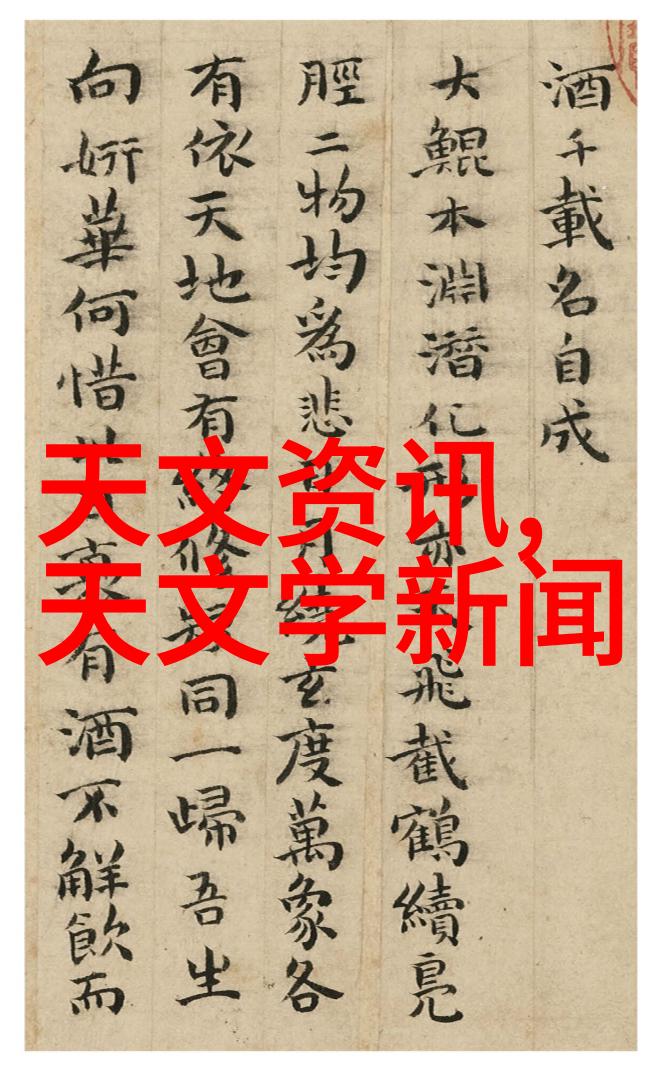 酒千載名自成
大鯤本淵潛化形亦飛截鶴續鳧
脛二物均爲悲日月繞玄度萬象各
有依天地會有終修短同一歸吾生
向妍華何惜有酒不解飲而
天文资讯,
天文学新闻